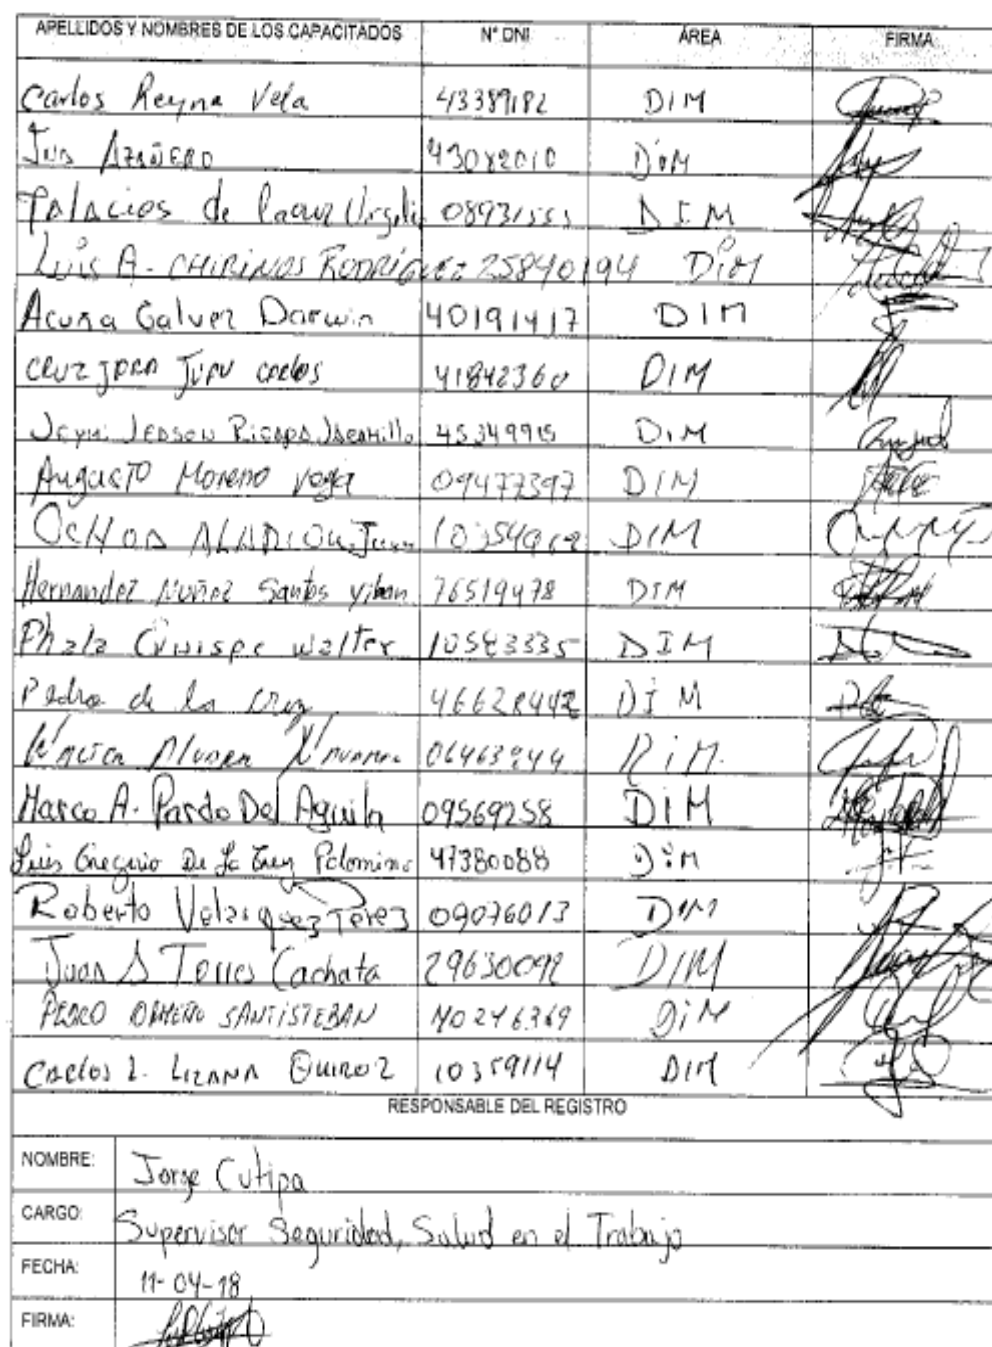 APELLIDOS Y NOMBRES DE LOS CAPACITADOS N° DNI ÁREA FIRMA
Carlos Reyna Vela 43389182 DIM
AZAÑERO 43082010 DIM
Palacios de DIM
Luis A. CHIRINOS RODRÍGUEZ 25840194 DIM
Acuña Galvez Darwin 40191417 DIM
CRUZ JUAN CARLOS 41842360 DIM
45349915 DIM
Augusto Moreno Vega 09477397 DIM
OCHOA DIM
Hernandez Nuñez Santos 76519478 DIM
Phala Quispe Walter DIM
Pedro de la Cruz 46628442 DIM
DIM
Marco A. Pardo Del Aguila 09569258 DIM
Luis Gregorio De La Cruz Palomino 47380088 DIM
Roberto Velasquez Perez 09076013 DIM
Juan A Torres Cachata 29630092 DIM
PEDRO ORMEÑO SANTISTEBAN 40246369 DIM
Carlos L. LIZANA QUIROZ 10359114 DIM
RESPONSABLE DEL REGISTRO
NOMBRE: Jorge Cutipa
CARGO: Supervisor Seguridad, Salud en el Trabajo
FECHA: 11-04-18
FIRMA: